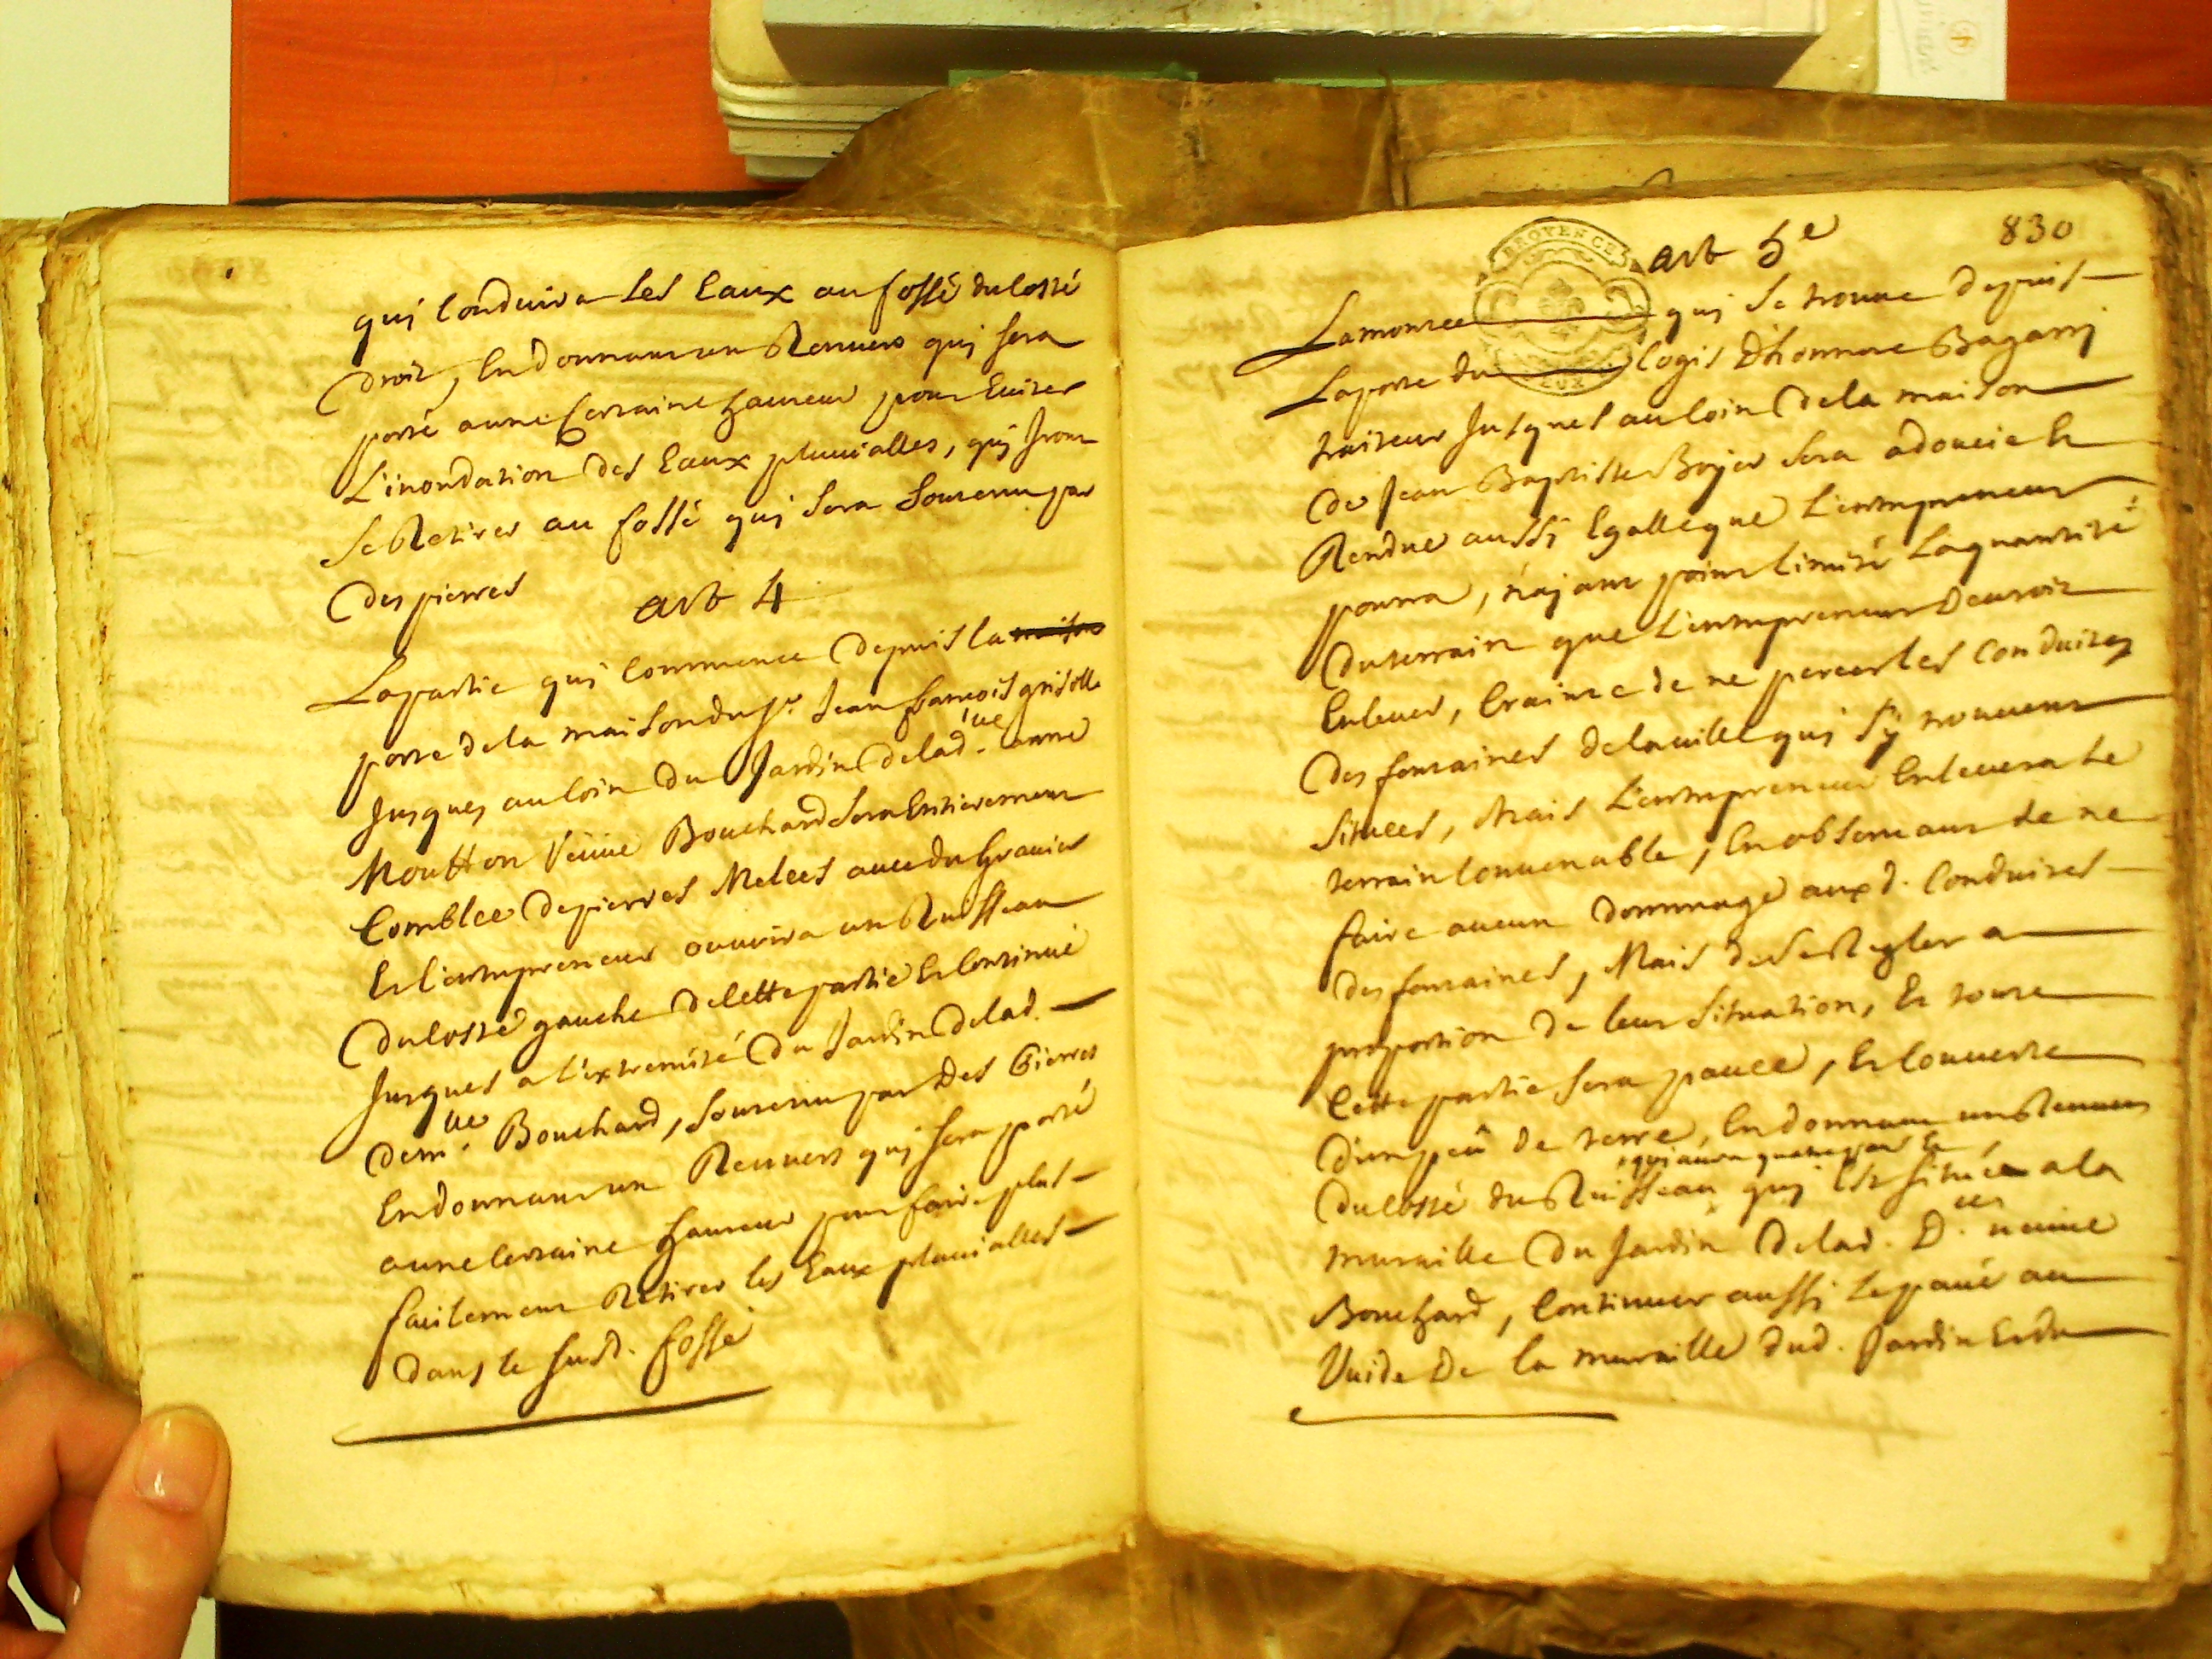 qui Conduira les Eaux au fossé du Costé
droit, En donnant un Renvers qui sera
porté a une Certaine hauteur pour Eviter
L'inondation des Eaux pluvialles, qui Iront
Se Retirer au fossé qui sera Soutenu par
des pierres
art 4
La partie qui Commence depuis la maison
porte de la maison du Sr. Jean françois grisolle
Jusques au Coin du Jardin de lad. ve anne
Moutton veuve Bouchard Sera Entierement
Comblée de pierres Melées avec du Gravier
Et l'entrepreneur ouvrira un Ruisseau
du Costé gauche de Cette partie Et Continué
Jusques a l'extremité du Jardin de lad.
dem. lle Bouchard, Soutenu par des Pierres
En donnant un Renvers qui sera porté
a une Certaine hauteur pour faire plus
facilement Retirer les Eaux pluvialles
dans le susd. fossé
830
PROVENCE
art 5e
La montée qui Se trouve depuis
La porte du Logis d'honnoré Bagarry
traiteur Jusques au Coin de la maison
de Jean Baptiste Boyer Sera adoucie Et
Rendue aussi Egalle que L'entrepreneur
pourra, n'ayant point Limité La quantité
du terrain que L'entrepreneur Devroit
Enlever, Crainte de ne percer les Conduites
des fontaines de la ville qui s'y trouvent
Situées, Mais L'entrepreneur Enlevera Le
terrain Convenable, En observant de ne
faire aucun dommage auxd. Conduites
des fontaines, Mais de Se Regler a
proportion de leur Situation, Et toute
Cette partie Sera pavée, Et Couverte
d'un peû de terre, En donnant un Renvers
qui aura quatre pans Et
du Costé du Ruisseau qui Est Située a la
muraille du Jardin de lad. D. lle veuve
Bouchard, Continuer aussi Le pavé au
Vuide de la muraille dud. Jardin Et du